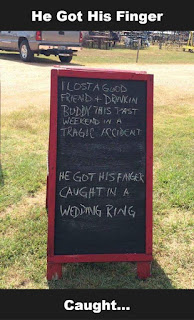 He Got His Finger
I LOST A GOOD
FRIEND & DRINKIN
BUDDY THIS PAST
WEEKEND IN A
TRAGIC ACCIDENT
HE GOT HIS FINGER
CAUGHT IN A
WEDDING RING
Caught...